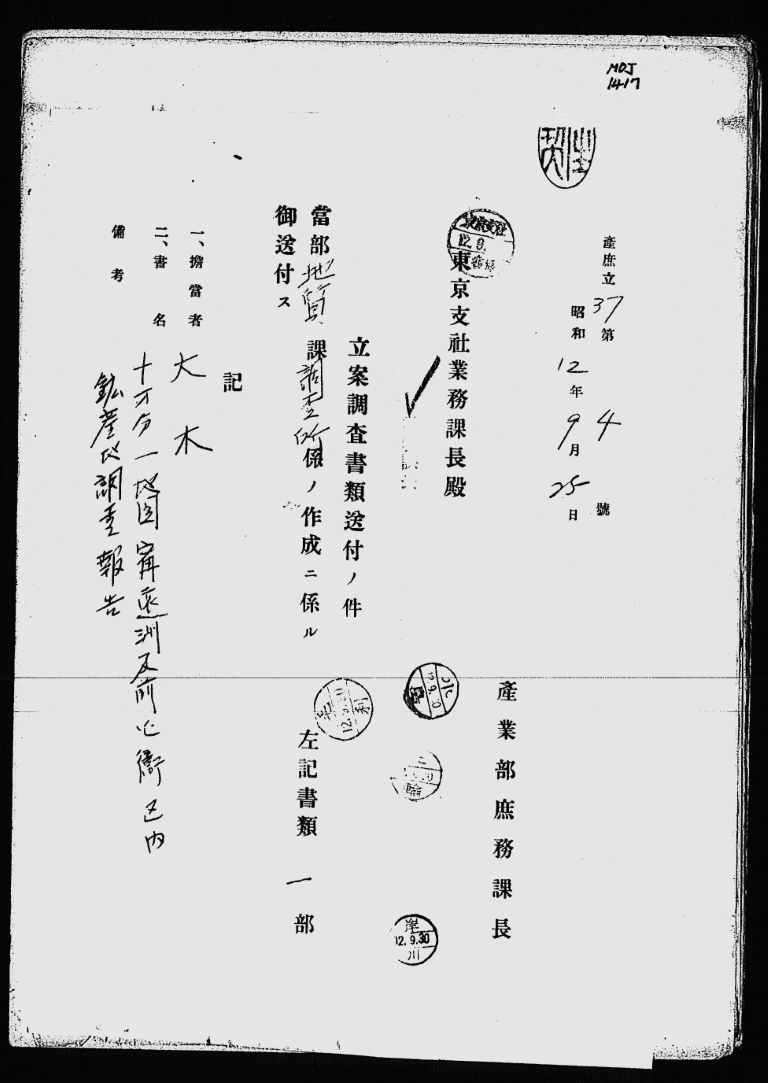 MOJ
1417
產庶立37第4號
昭和12年9月25日
產業部庶務課長
東京支社業務課長殿
立案調査書類送付ノ件
當部地質課調査所係ノ作成ニ係ル左記書類一部
御送付ス
記
一、擔當者 大木
二、書名 十万分一地図寗遠洲及前心衛区内
鉱産地調査報告
備考
12.9.30
岸川
12.9.30